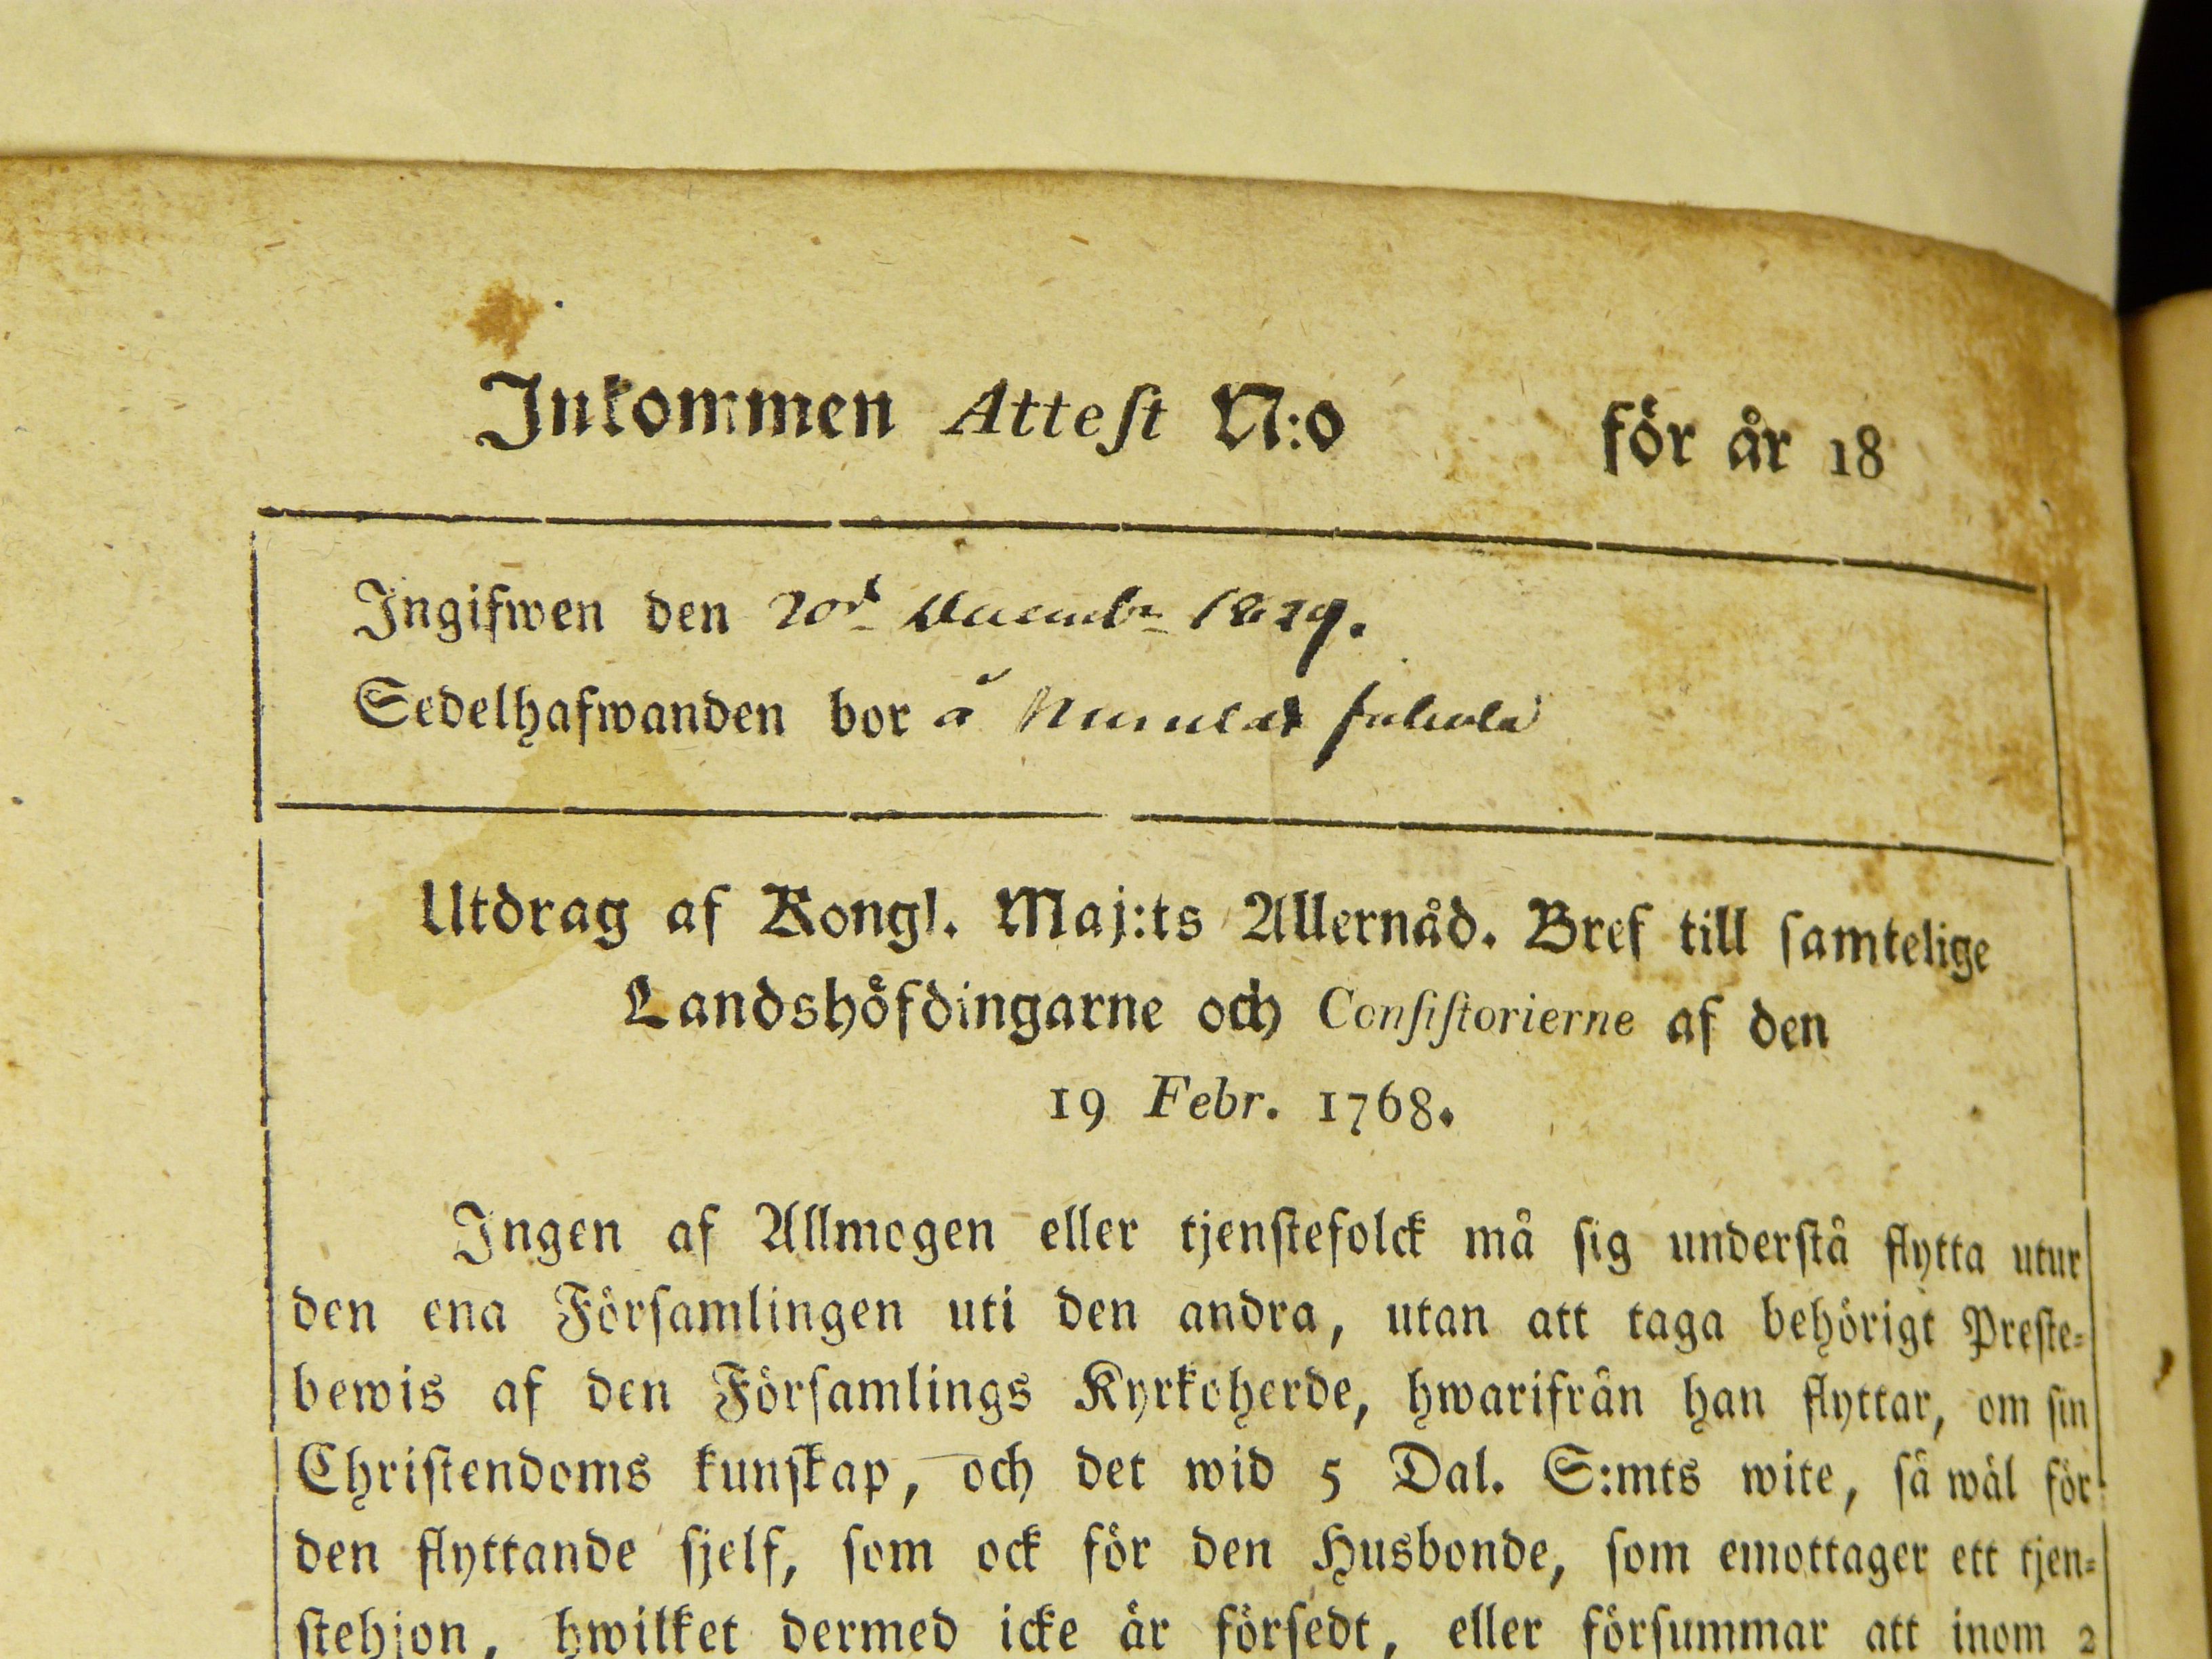 Inkommen Attest N:o för år 18
Ingifwen den 20d Decembr 1829.
Sedelhafwanden bor å
Utdrag af Kongl. Maj:ts Allernåd. Bref till samtelige
Landshöfdingarne och Consistorierne af den
19 Febr. 1768.
Ingen af Allmogen eller tjenstefolck må sig understå flytta utur
den ena Församlingen uti den andra, utan att taga behörigt Preste-
bewis af den Församlings Kyrkoherde, hwarifrån han flyttar, om sin
Christendoms kunskap, och det wid 5 Dal. S:mts wite, så wäl för
den flyttande sjelf, som ock för den Husbonde, som emottager ett tjen-
stehjon, hwilket dermed icke är försedt, eller försummar att inom 2